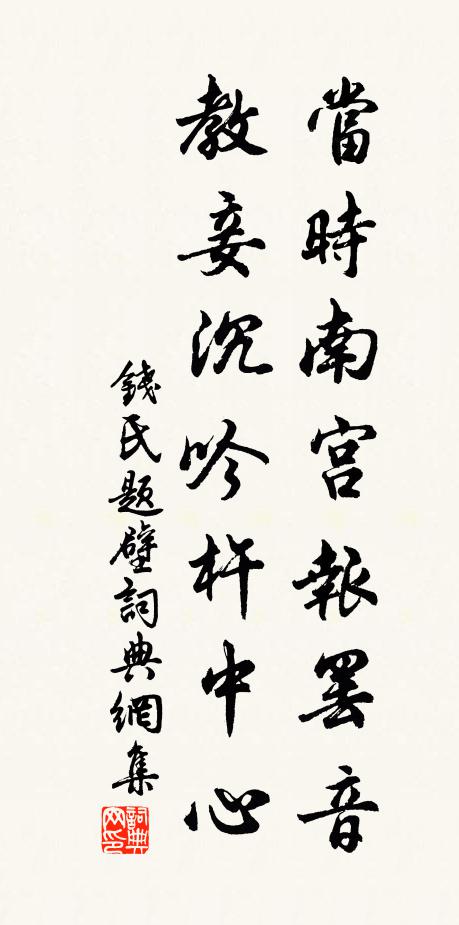 當時南宫報罷音
教妾沉吟杵中心
錢氏題壁詞典網集
詞典网印